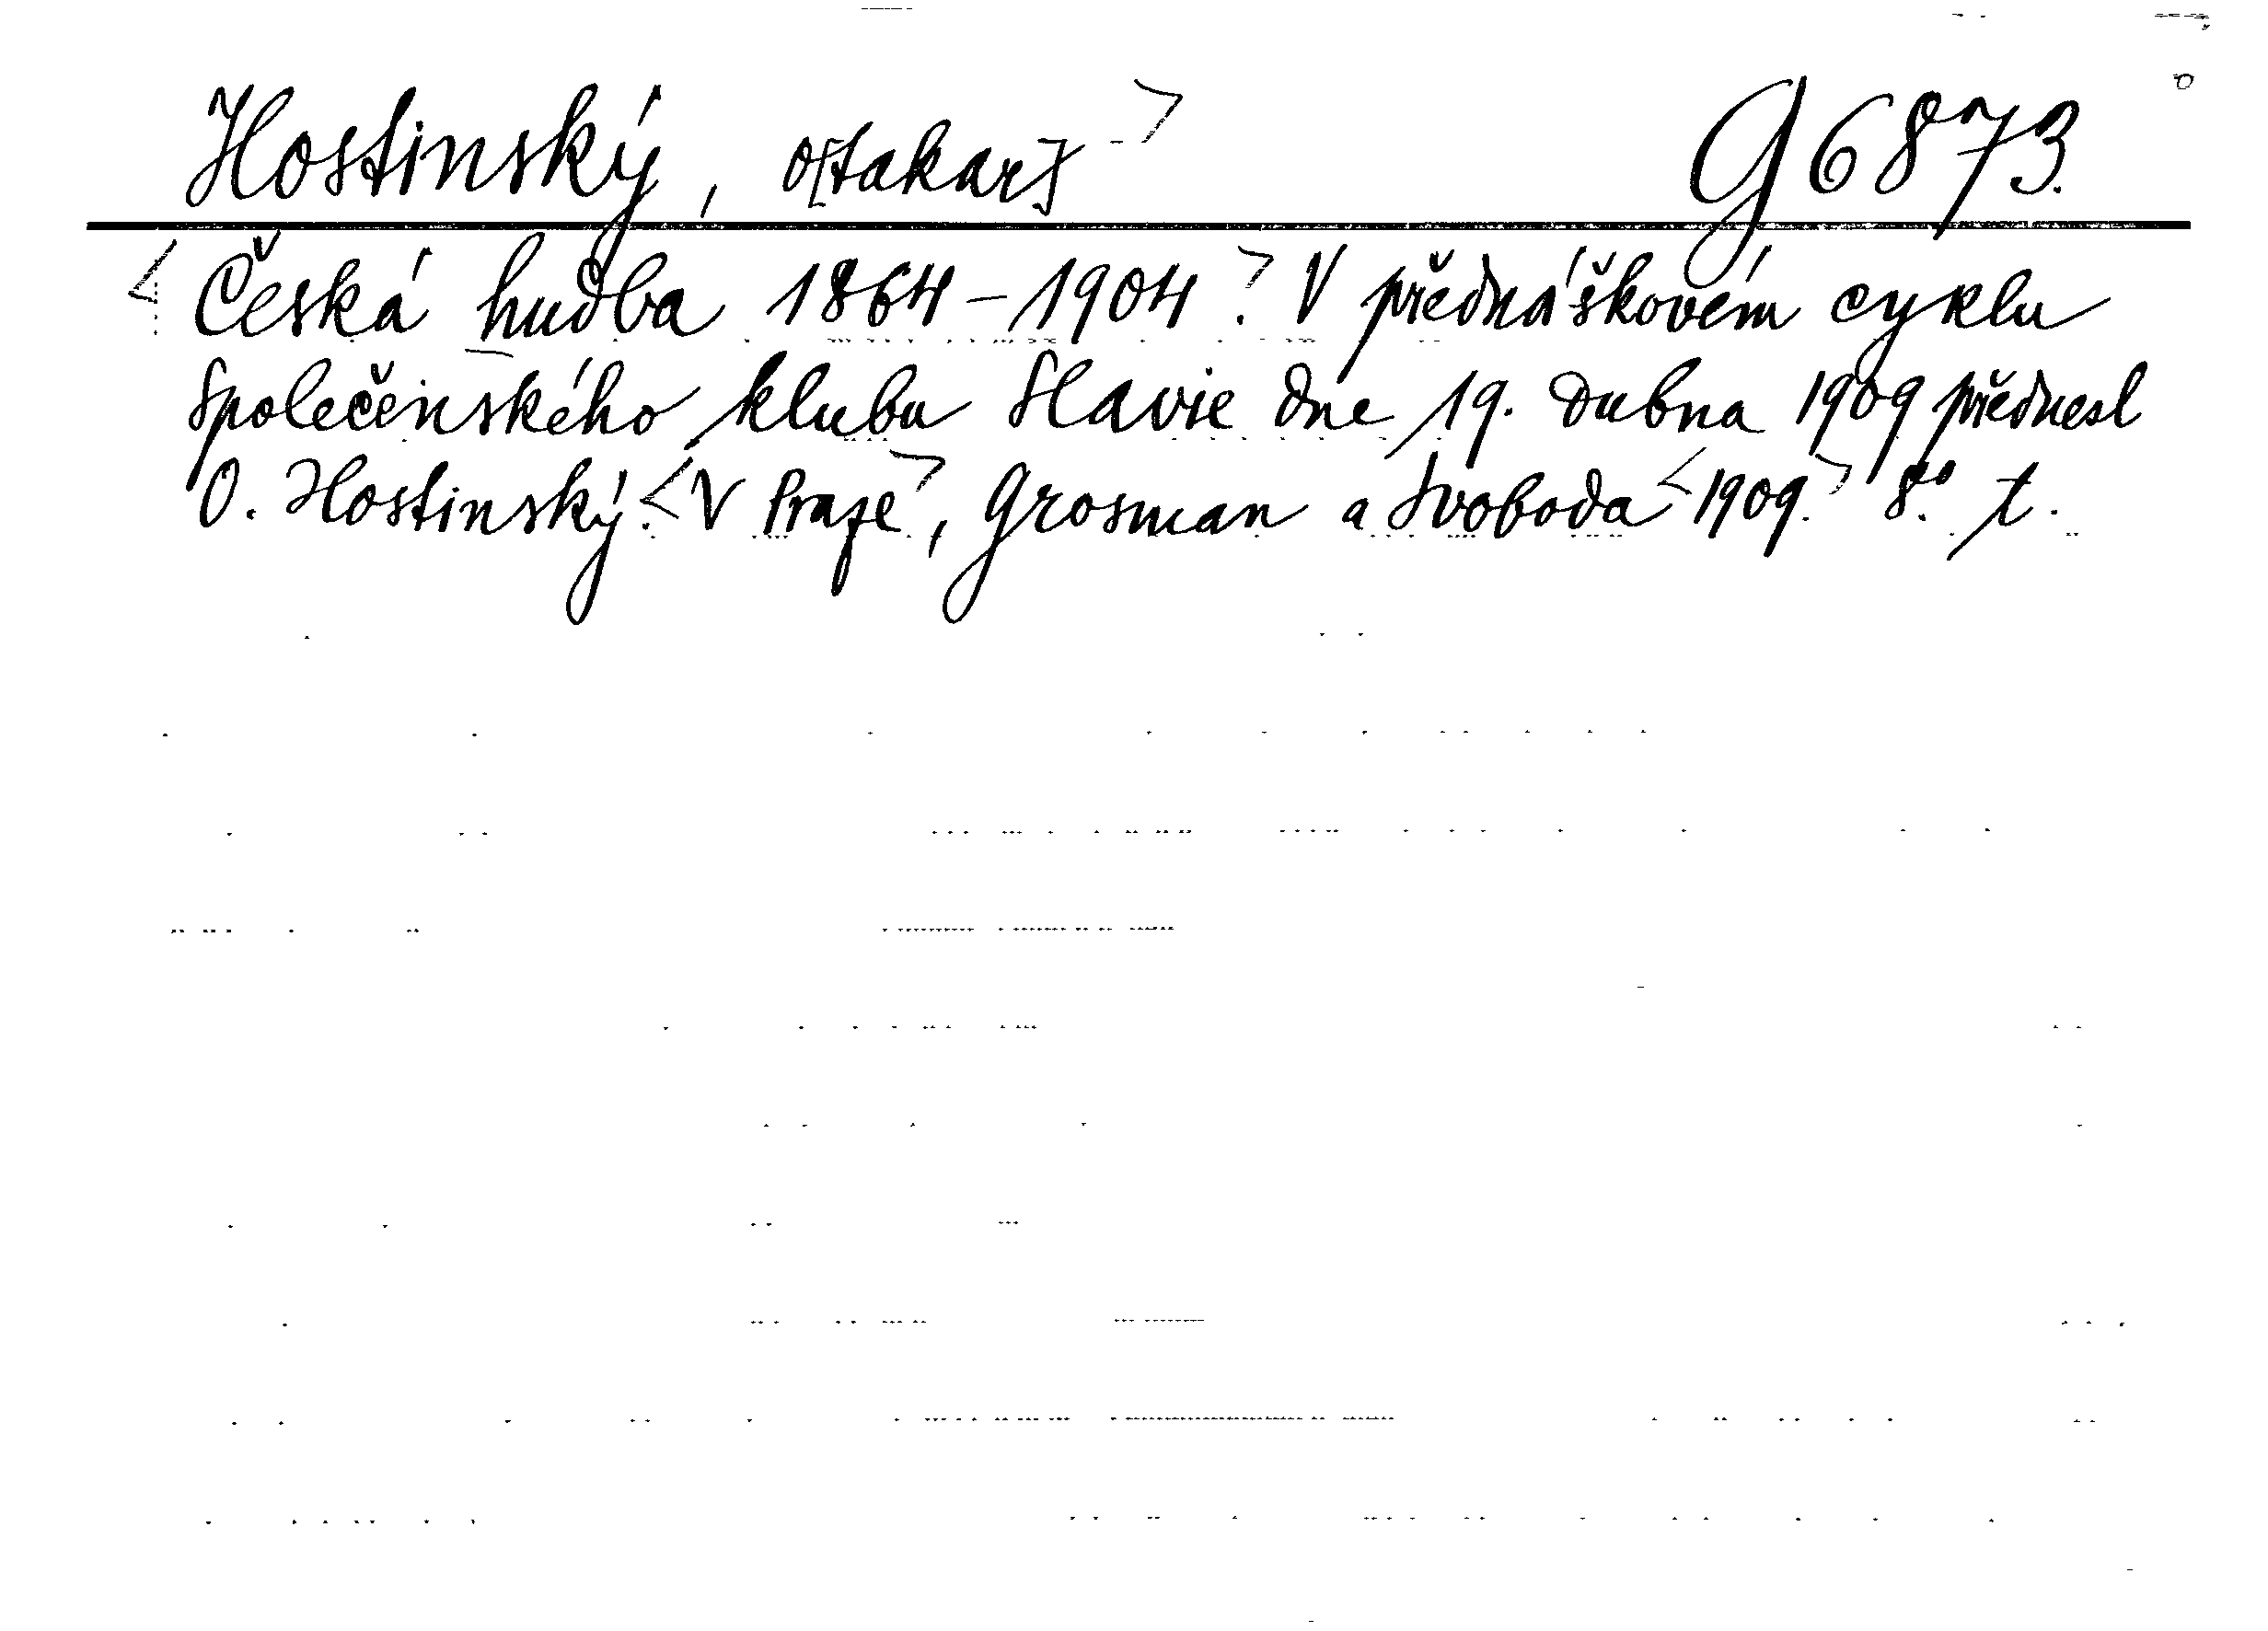 Hostinský, O[takar] > G 6873.
< Česká hudba 1864–1904.> V přednáškovém cyklu
Společenského klubu Slavie dne 19. dubna 1909 přednesl
O. Hostinský. < V Praze >, Grosman a Svoboda < 1909. > 8.° t.